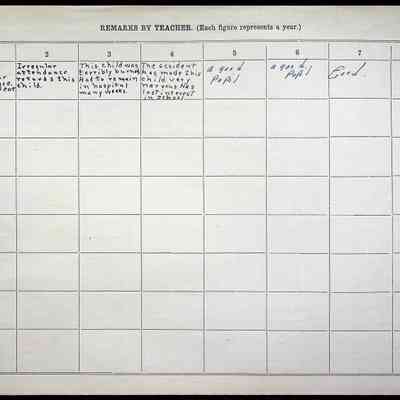 REMARKS BY TEACHER. (Each figure represents a year.)
2 3 4 5 6 7
Irregular
attendance
retards this
child.
This child was
terribly burned
Had to remain
in hospital
many weeks.
The accident
has made this
child very
nervous. Has
lost interest
in school
a good
Pupil
a good
Pupil
Good.